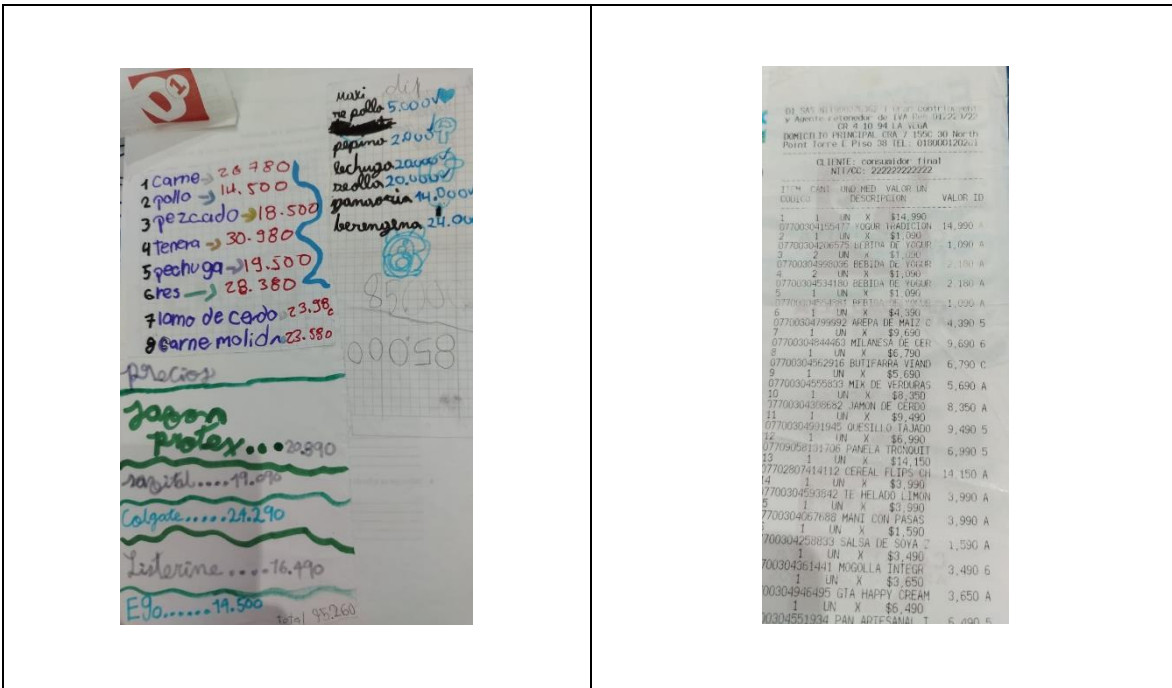 01
1 Carne → 26780
2 pollo → 14.500
3 pezcado → 18.500
4 tenera → 30.980
5 pechuga → 19.500
6 res → 28.380
7 lomo de cerdo 23.98
8 Carne molida 23.580
precios
Jabon
protex... 20.890
sazital.... 19.090
Colgate..... 24.290
Listerine .... 16.490
Ego...... 14.500
Total 95.260
dip
Maxi
pollo 5.000
pepino 2.000
lechuga 20.000
seolla 20.000
zanaoria 14.000
berengena 24.00
85000
y Agente retenedor de IVA
CR 4 10 94 LA VEGA
DOMICILIO PRINCIPAL CRA 7 155C 30 North
Point Torre E Piso 38 TEL.: 018000120201
CLIENTE: consumidor final
NIT/CC: 222222222222
ITEM CANT UND.MED VALOR UN
CODIGO DESCRIPCION VALOR ID
1 1 UN X $14,990
07700304155477 YOGUR TRADICION 14,990 A
2 1 UN X $1,090
07700304206575 BEBIDA DE YOGUR 1,090 A
3 2 UN X $1,090
07700304998036 BEBIDA DE YOGUR 2,180 A
4 2 UN X $1,090
07700304534180 BEBIDA DE YOGUR 2,180 A
5 1 UN X $1,090
BEBIDA DE YOGUR 1,090 A
6 1 UN X $4,390
07700304799992 AREPA DE MAIZ C 4,390 5
7 1 UN X $9,690
07700304844463 MILANESA DE CER 9,690 6
8 1 UN X $6,790
07700304562916 BUTIFARRA VIAND 6,790 C
9 1 UN X $5,690
07700304555833 MIX DE VERDURAS 5,690 A
10 1 UN X $8,350
07700304308682 JAMON DE CERDO 8,350 A
11 1 UN X $9,490
07700304991945 QUESILLO TAJADO 9,490 5
12 1 UN X $6,990
07709058101706 PANELA TRONQUIT 6,990 5
13 1 UN X $14,150
07702807414112 CEREAL FLIPS CH 14,150 A
14 1 UN X $3,990
7700304593842 TE HELADO LIMON 3,990 A
5 1 UN X $3,990
7700304067688 MANI CON PASAS 3,990 A
1 UN X $1,590
7700304258833 SALSA DE SOYA Z 1,590 A
1 UN X $3,490
700304361441 MOGOLLA INTEGR 3,490 6
1 UN X $3,650
00304946495 GTA HAPPY CREAM 3,650 A
1 UN X $6,490
00304551934 PAN ARTESANAL T 6,490 5